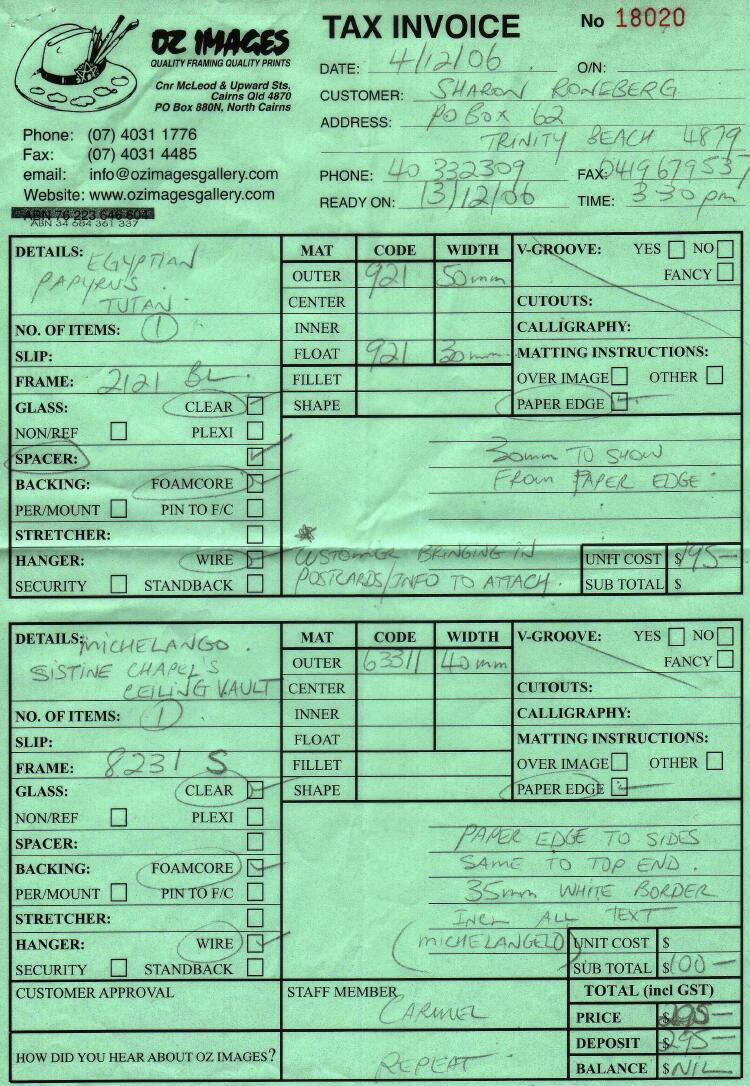 OZ IMAGES
QUALITY FRAMING QUALITY PRINTS
Cnr McLeod & Upward Sts,
Cairns Qld 4870
PO Box 880N, North Cairns
Phone: (07) 4031 1776
Fax: (07) 4031 4485
email: info@ozimagesgallery.com
Website: www.ozimagesgallery.com
ABN 76 223 646 604
ABN 34 684 361 337
TAX INVOICE
No 18020
DATE: 4/12/06 O/N:
CUSTOMER: SHARON RONEBERG
ADDRESS: PO BOX 62
TRINITY BEACH 4879
PHONE: 40 332309 FAX: 041967953
READY ON: 13/12/06 TIME: 3 30 pm
DETAILS: EGYPTIAN
PAPYRNS
TUTAN
NO. OF ITEMS: 1
SLIP:
FRAME: 2121 BL
GLASS: CLEAR
NON/REF PLEXI
SPACER:
BACKING: FOAMCORE
PER/MOUNT PIN TO F/C
STRETCHER:
HANGER: WIRE
SECURITY STANDBACK
MAT CODE WIDTH
OUTER 921 50mm
CENTER
INNER
FLOAT 921 30mm
FILLET
SHAPE
V-GROOVE: YES NO
FANCY
CUTOUTS:
CALLIGRAPHY:
MATTING INSTRUCTIONS:
OVER IMAGE OTHER
PAPER EDGE
30mm TO SHOW
FROM PAPER EDGE
CUSTOMER BRINGING IN
POSTCARDS/INFO TO ATTACH.
UNIT COST $195-
SUB TOTAL $
DETAILS: MICHELANGO.
SISTINE CHAPEL'S
CEILING VAULT
NO. OF ITEMS: 1
SLIP:
FRAME: 8231 S
GLASS: CLEAR
NON/REF PLEXI
SPACER:
BACKING: FOAMCORE
PER/MOUNT PIN TO F/C
STRETCHER:
HANGER: WIRE
SECURITY STANDBACK
MAT CODE WIDTH
OUTER 63311 40mm
CENTER
INNER
FLOAT
FILLET
SHAPE
V-GROOVE: YES NO
FANCY
CUTOUTS:
CALLIGRAPHY:
MATTING INSTRUCTIONS:
OVER IMAGE OTHER
PAPER EDGE
PAPER EDGE TO SIDES
SAME TO TOP END.
35mm WHITE BORDER
INCL ALL TEXT
(MICHELANGELO)
UNIT COST $
SUB TOTAL $100-
CUSTOMER APPROVAL
STAFF MEMBER CARMEL
TOTAL (incl GST)
PRICE $
DEPOSIT $295-
BALANCE $NIL
HOW DID YOU HEAR ABOUT OZ IMAGES? REPEAT